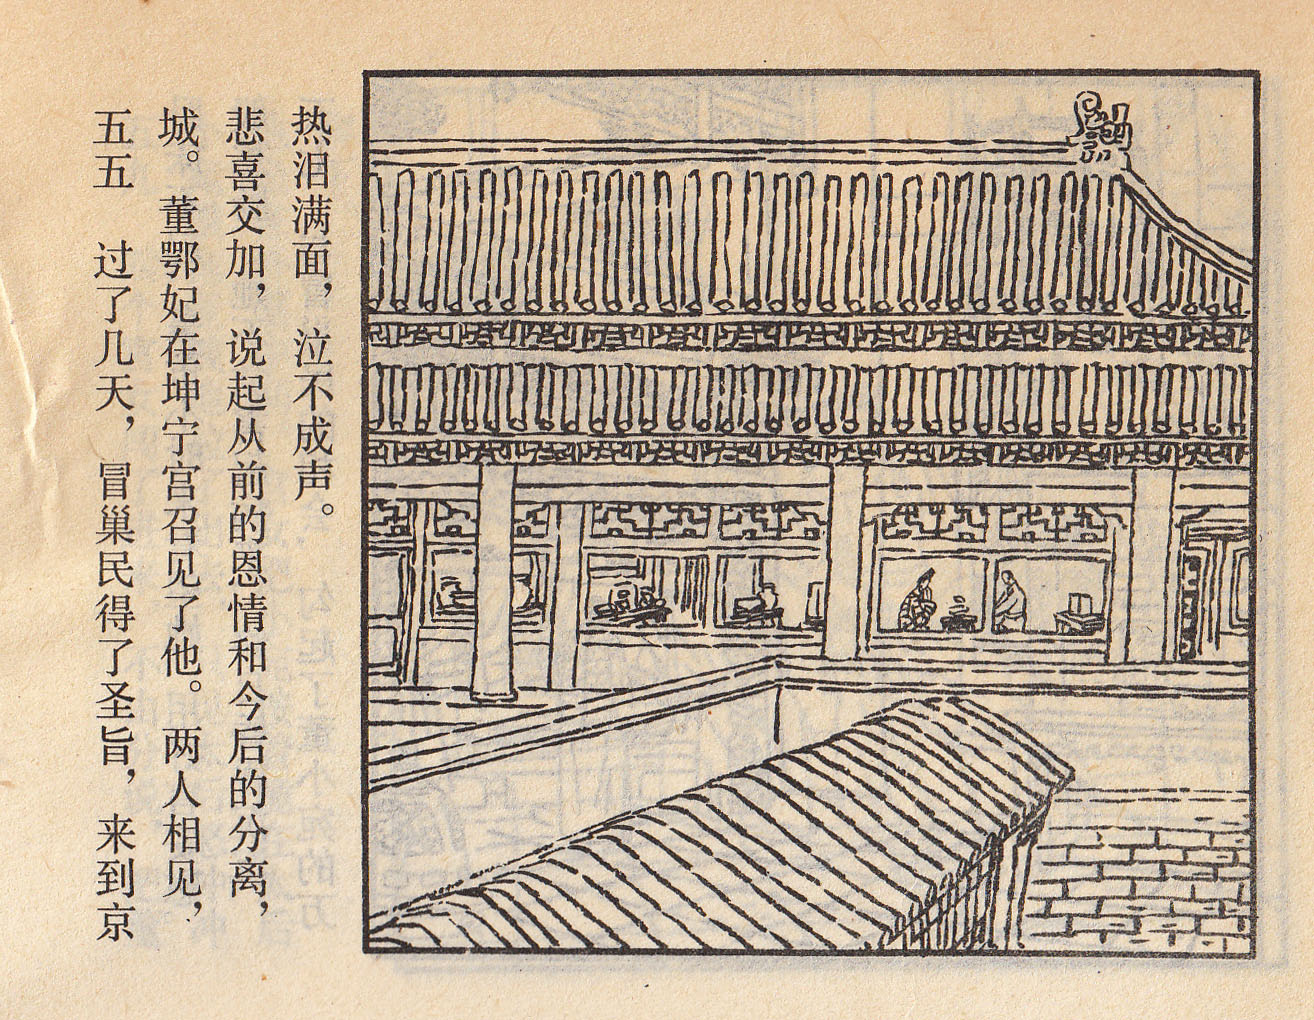 五五　过了几天，冒巢民得了圣旨，来到京
城。董鄂妃在坤宁宫召见了他。两人相见，
悲喜交加，说起从前的恩情和今后的分离，
热泪满面，泣不成声。